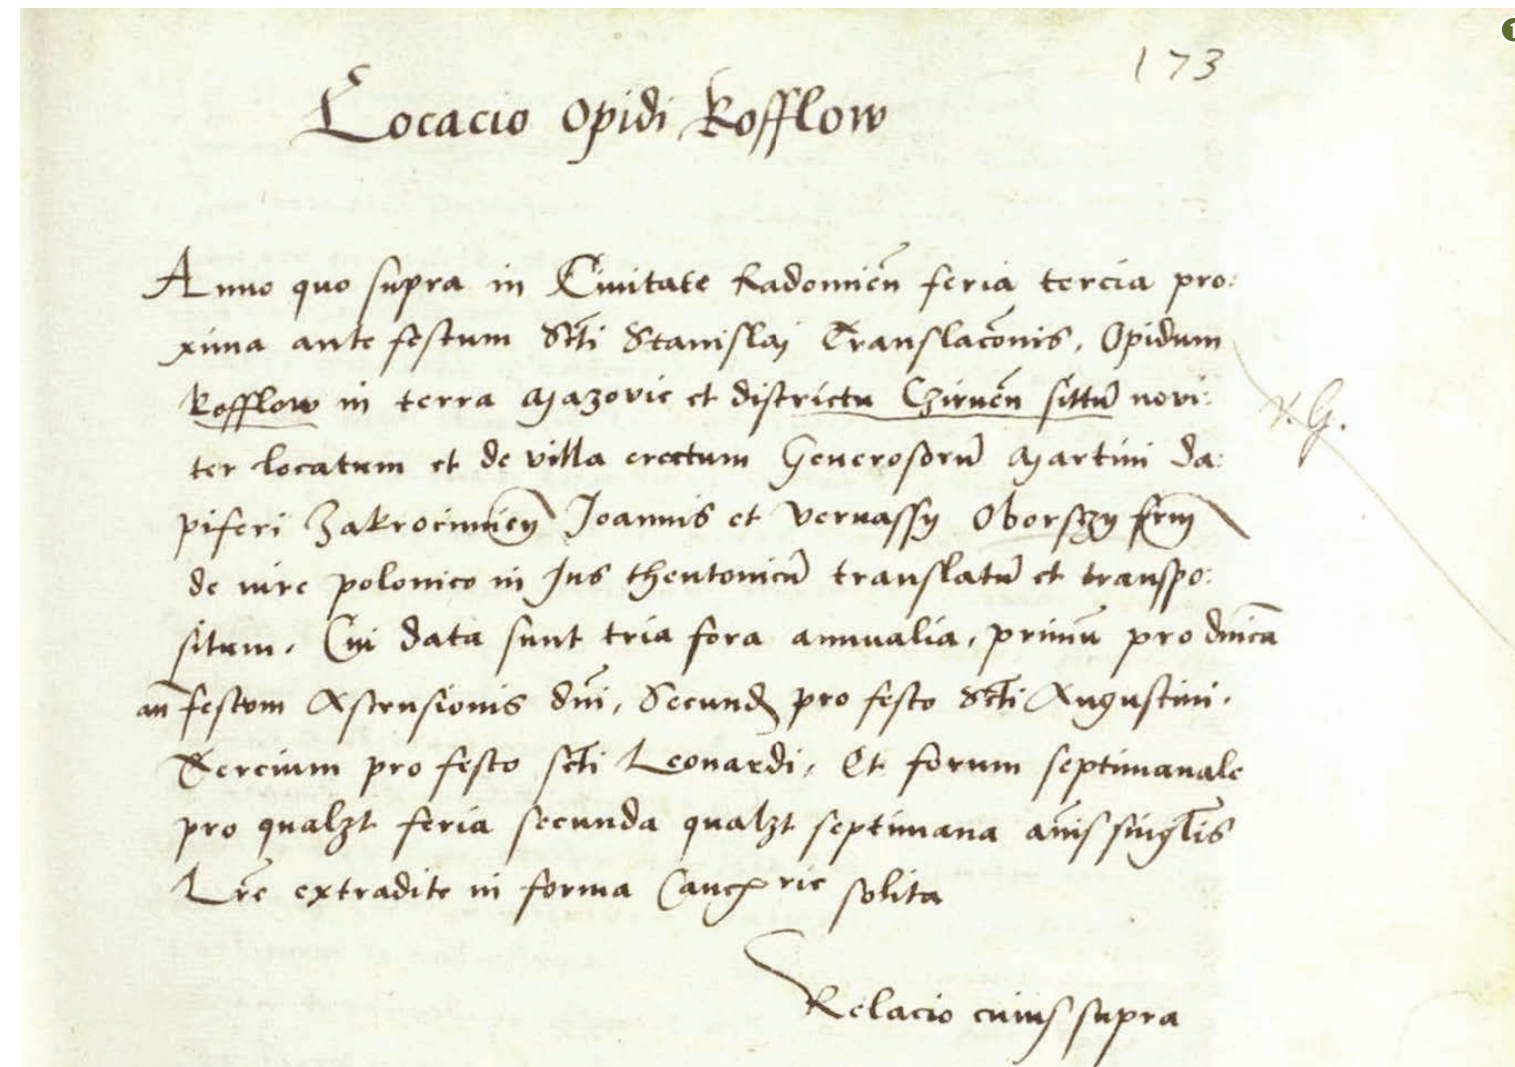 173
Locacio Opidi Kofflow
Anno quo supra in Civitate Radomien̄ feria tercia pro:
xima ante festum Scti Stanislaj Translacōnis, Opidum
Kofflow in terra Mazovie et districtu Czirnen̄ sittū novi:
ter locatum et de villa erectum Generosorū Martini Da:
piferi Zakrocimien̄ Joannis et Vernassy Oborszy frm̄
de iure polonico in Jus theutonicū translatū et transpo:
situm. Cui data sunt tria fora annualia, primū pro dnīca
an̄ festum Ascensionis dnī, Secund pro festo Scti Augustini.
Tercium pro festo scti Leonardi, Et forum septimanale
pro qualzt feria secunda qualzt septimana an̄is singlis
Lrē extradite in forma Cancrie solita
Relacio cuius supra